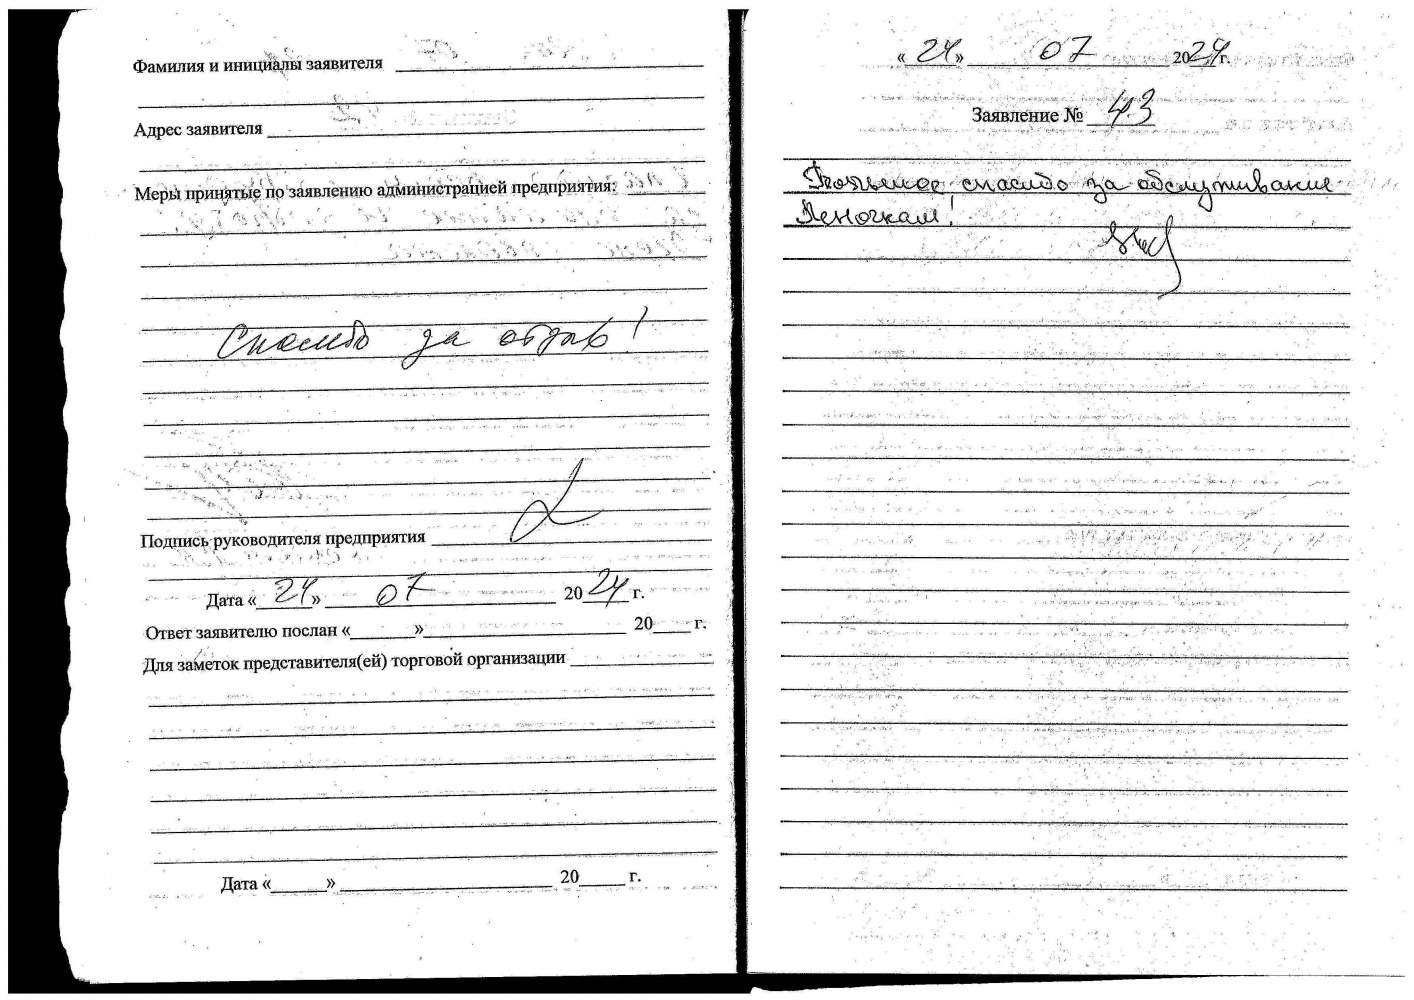 Фамилия и инициалы заявителя
Адрес заявителя
Меры принятые по заявлению администрацией предприятия:
Спасибо за отзыв!
Подпись руководителя предприятия
Дата «24» 07 2024 г.
Ответ заявителю послан «______» 20____ г.
Для заметок представителя(ей) торговой организации
Дата «______» 20_____ г.
«24» 07 2024 г.
Заявление № 43
спасибо за обслуживание
Леночкам!